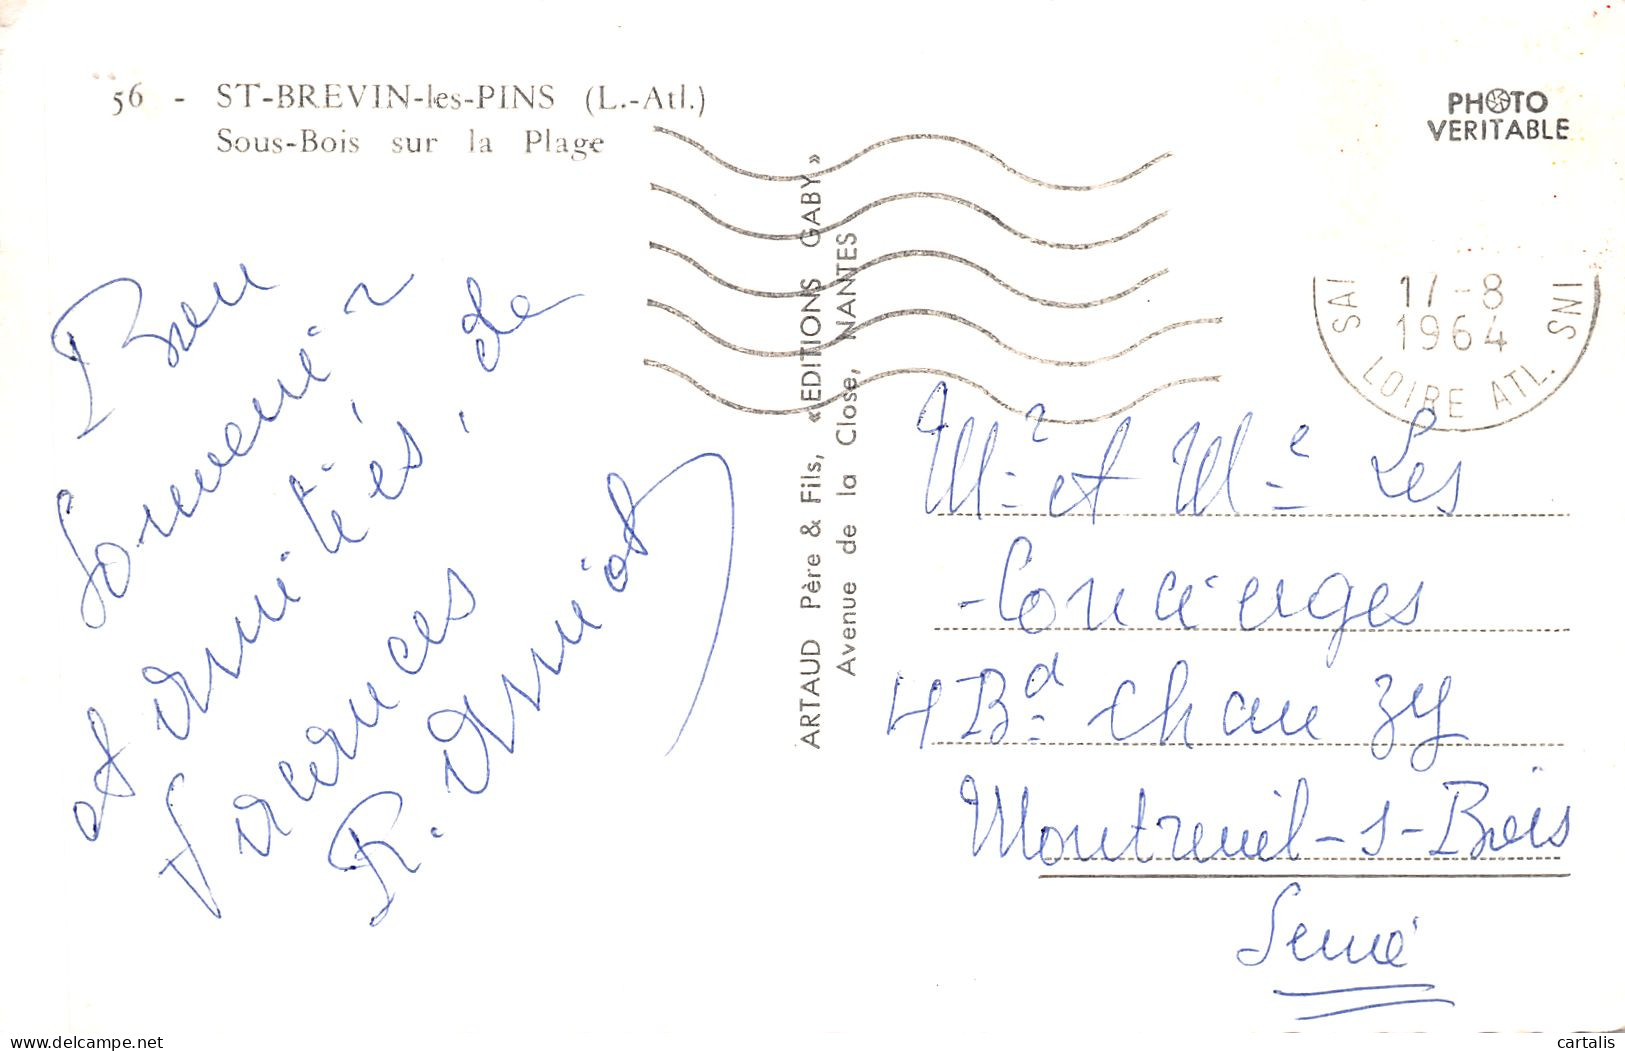 56 - ST-BREVIN-les-PINS (L.-Atl.)
Sous-Bois sur la Plage
PHOTO
VERITABLE
ARTAUD Père & Fils, «EDITIONS GABY»
Avenue de la Close, NANTES
17-8
1964
SAI
LOIRE ATL.
INS
Bon
Souvenir
et amitiés, de
vacances
R. Amiot
Mr et Me Les
Concierges
4 Bd chanzy
Montreuil-s-Bois
Seine
delcampe.net
cartalis